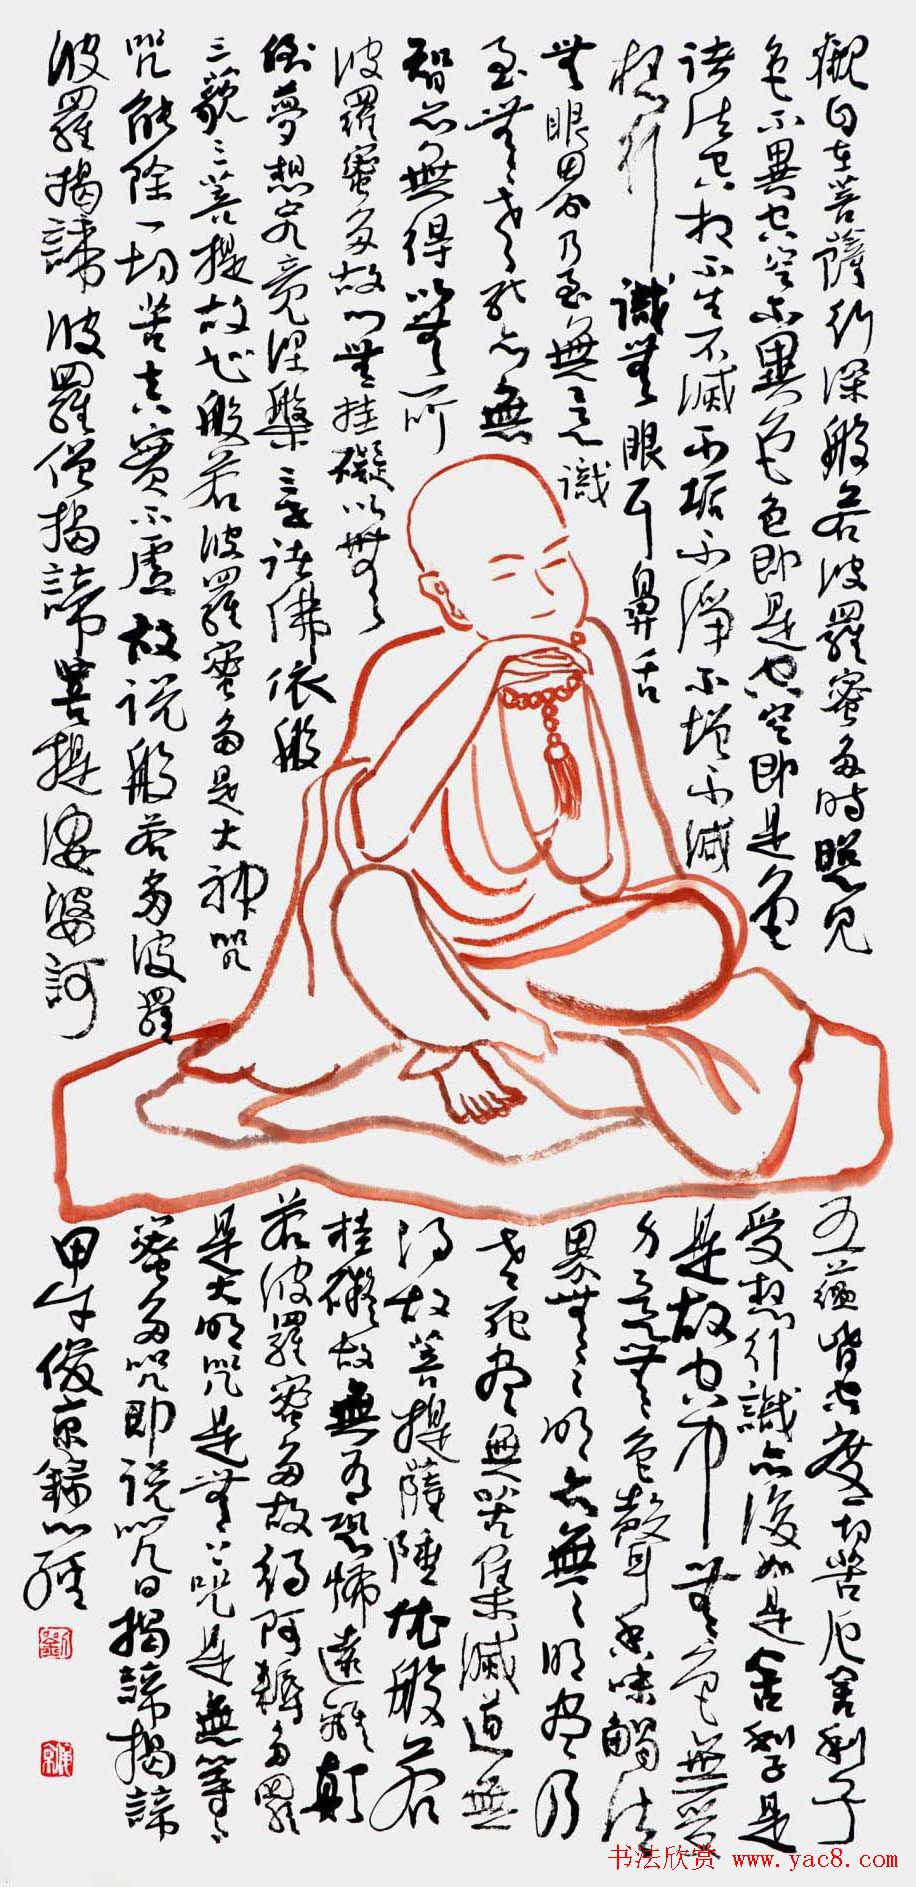 觀自在菩薩行深般若波羅蜜多時照見
五蘊皆空度一切苦厄舍利子
色不異空空不異色色即是空空即是色
受想行識亦復如是舍利子是
諸法空相不生不滅不垢不淨不增不減
是故空中無色無受
想行識無眼耳鼻舌
身意無色聲香味觸法
無眼界乃至無意識
界無無明亦無無明盡乃
至無老死亦無
老死盡無苦集滅道無
智亦無得以無所
得故菩提薩埵依般若
波羅蜜多故心無挂礙以無
挂礙故無有恐怖遠離顛
倒夢想究竟涅槃三世諸佛依般
若波羅蜜多故得阿耨多羅
三藐三菩提故知般若波羅蜜多是大神咒
是大明咒是無上咒是無等等
咒能除一切苦真實不虛故說般若多波羅
蜜多咒即說咒曰揭諦揭諦
波羅揭諦波羅僧揭諦菩提薩婆訶
甲午俊京錄心經
劉
俊京
书法欣赏 www.yac8.com